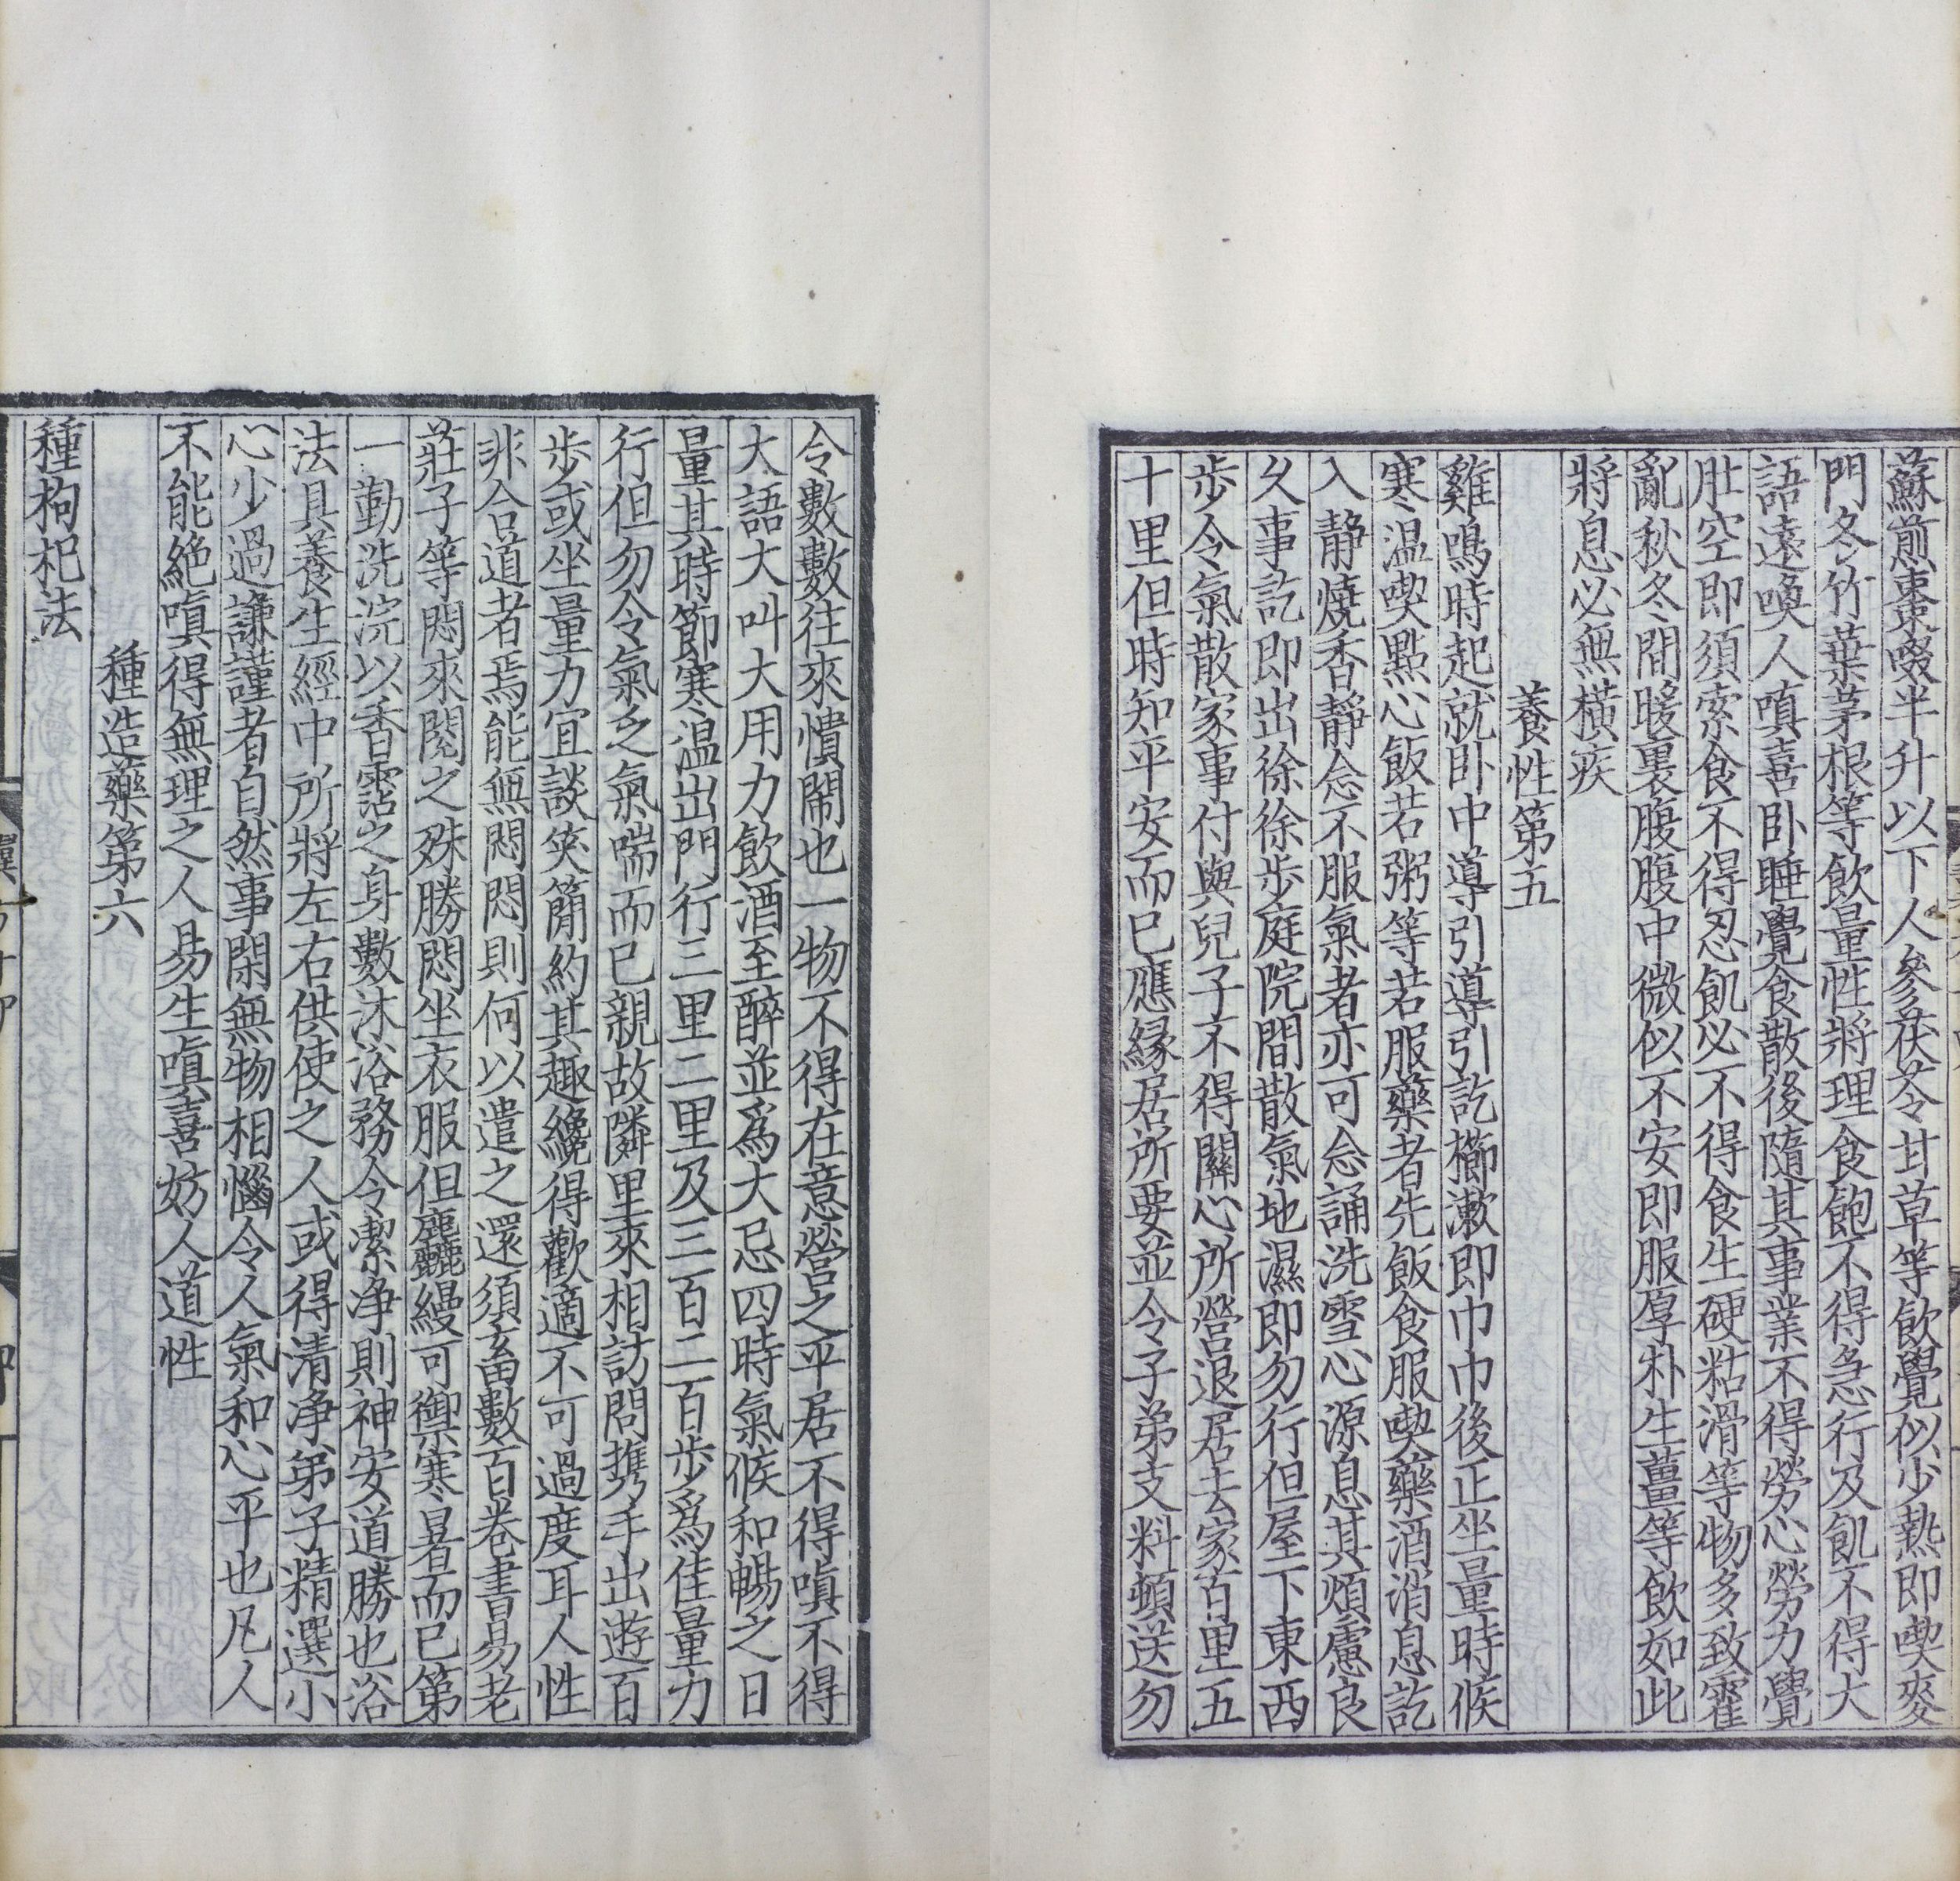 蘇煎棗啜半升以下人參茯苓甘草等飲覺似少熱即喫麥
門冬竹葉茅根等飲量性將理食飽不得急行及飢不得大
語遠喚人嗔喜卧睡覺食散後隨其事業不得勞心勞力覺
肚空即須索食不得忍飢必不得食生硬粘滑等物多致霍
亂秋冬間暖裹腹腹中微似不安即服厚朴生薑等飲如此
將息必無橫疾
養性第五
雞鳴時起就卧中導引導引訖櫛漱即巾巾後正坐量時候
寒温喫點心飯若粥等若服藥者先飯食服喫藥酒消息訖
入靜燒香靜念不服氣者亦可念誦洗雪心源息其煩慮良
久事訖即出徐徐步庭院間散氣地濕即勿行但屋下東西
步令氣散家事付與兒子不得關心所營退居去家百里五
十里但時知平安而已應緣居所要並令子弟支料頓送勿
令數數往來憒鬧也一物不得在意營之平居不得嗔不得
大語大叫大用力飲酒至醉並爲大忌四時氣候和暢之日
量其時節寒温出門行三里二里及三百二百步爲佳量力
行但勿令氣乏氣喘而已親故隣里來相訪問携手出遊百
步或坐量力宜談笑簡約其趣纔得歡適不可過度耳人性
非合道者焉能無悶悶則何以遣之還須畜數百卷書易老
莊子等悶來閱之殊勝悶坐衣服但麤縵可禦寒暑而已第
一勤洗浣以香霑之身數沐浴務令潔净則神安道勝也浴
法具養生經中所將左右供使之人或得清净弟子精選小
心少過謙謹者自然事閑無物相惱令人氣和心平也凡人
不能絶嗔得無理之人易生嗔喜妨人道性
種造藥第六
種枸杞法